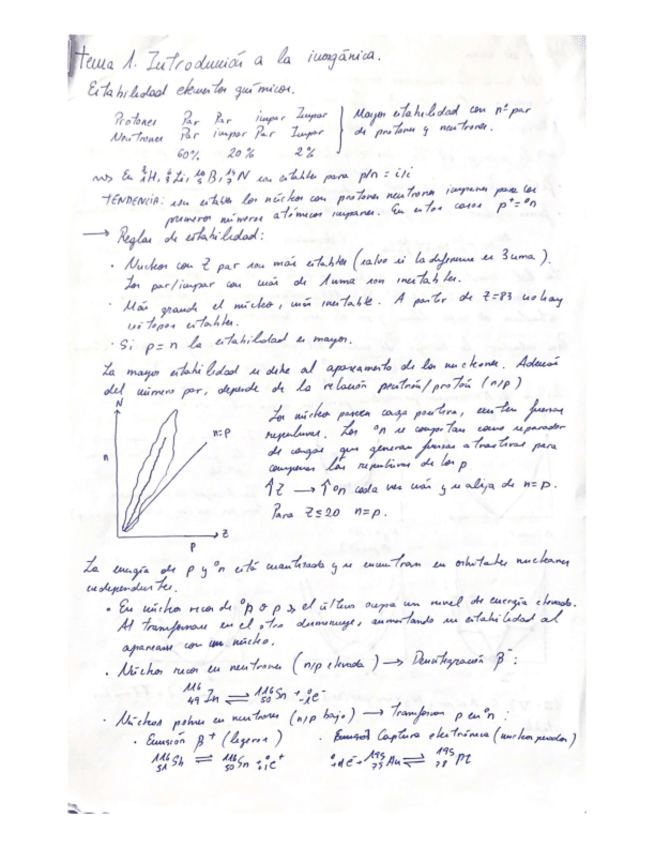 Tema 1. Introducción a la inorgánica.
Estabilidad elementos químicos.
Protones Par Par impar Impar
Neutrones Par impar Par Impar
60% 20% 2%
Mayor estabilidad con nº par
de protones y neutrones.
En ²₁H, ⁶₃Li, ¹⁰₅B, ¹⁴₇N son estables para p/n = i/i
TENDENCIA: son estables los núcleos con protones neutrones impares para los
primeros números atómicos impares. En estos casos p⁺=⁰n
→ Reglas de estabilidad:
· Núcleos con Z par son más estables (salvo si la diferencia es 3uma).
Los par/impar con más de 1uma son inestables.
· Más grande el núcleo, más inestable. A partir de Z=83 no hay
isótopos estables.
· Si p=n la estabilidad es mayor.
La mayor estabilidad se debe al apareamiento de los nucleones. Además
del número par, depende de la relación neutrón/protón (n/p)
N
n
n=p
Z
P
Los núcleos poseen carga positiva, existen fuerzas
repulsivas. Los ⁰n se comportan como separador
de cargas que generan fuerzas atractivas para
compensar las repulsivas de los p
↑Z → ↑⁰n cada vez más y se aleja de n=p.
Para Z≤20 n=p.
La energía de p y ⁰n está cuantizada y se encuentran en orbitales nucleares
independientes.
· En núcleos ricos de ⁰n o p, el último ocupa un nivel de energía elevado.
Al transformarse en el otro disminuye, aumentando su estabilidad al
aparearse con un núcleo.
· Núcleos ricos en neutrones (n/p elevada) → Desintegración β⁻:
¹¹⁶₄₉In ⇌ ¹¹⁶₅₀Sn + ⁰₋₁e⁻
· Núcleos pobres en neutrones (n/p bajo) → Transforman p en ⁰n:
· Emisión β⁺ (ligeros)
· Captura electrónica (núcleos pesados)
¹¹⁶₅₁Sb ⇌ ¹¹⁶₅₀Sn + ⁰₊₁e⁺
⁰₋₁e⁻ + ¹⁹⁵₇₉Au ⇌ ¹⁹⁵₇₈Pt